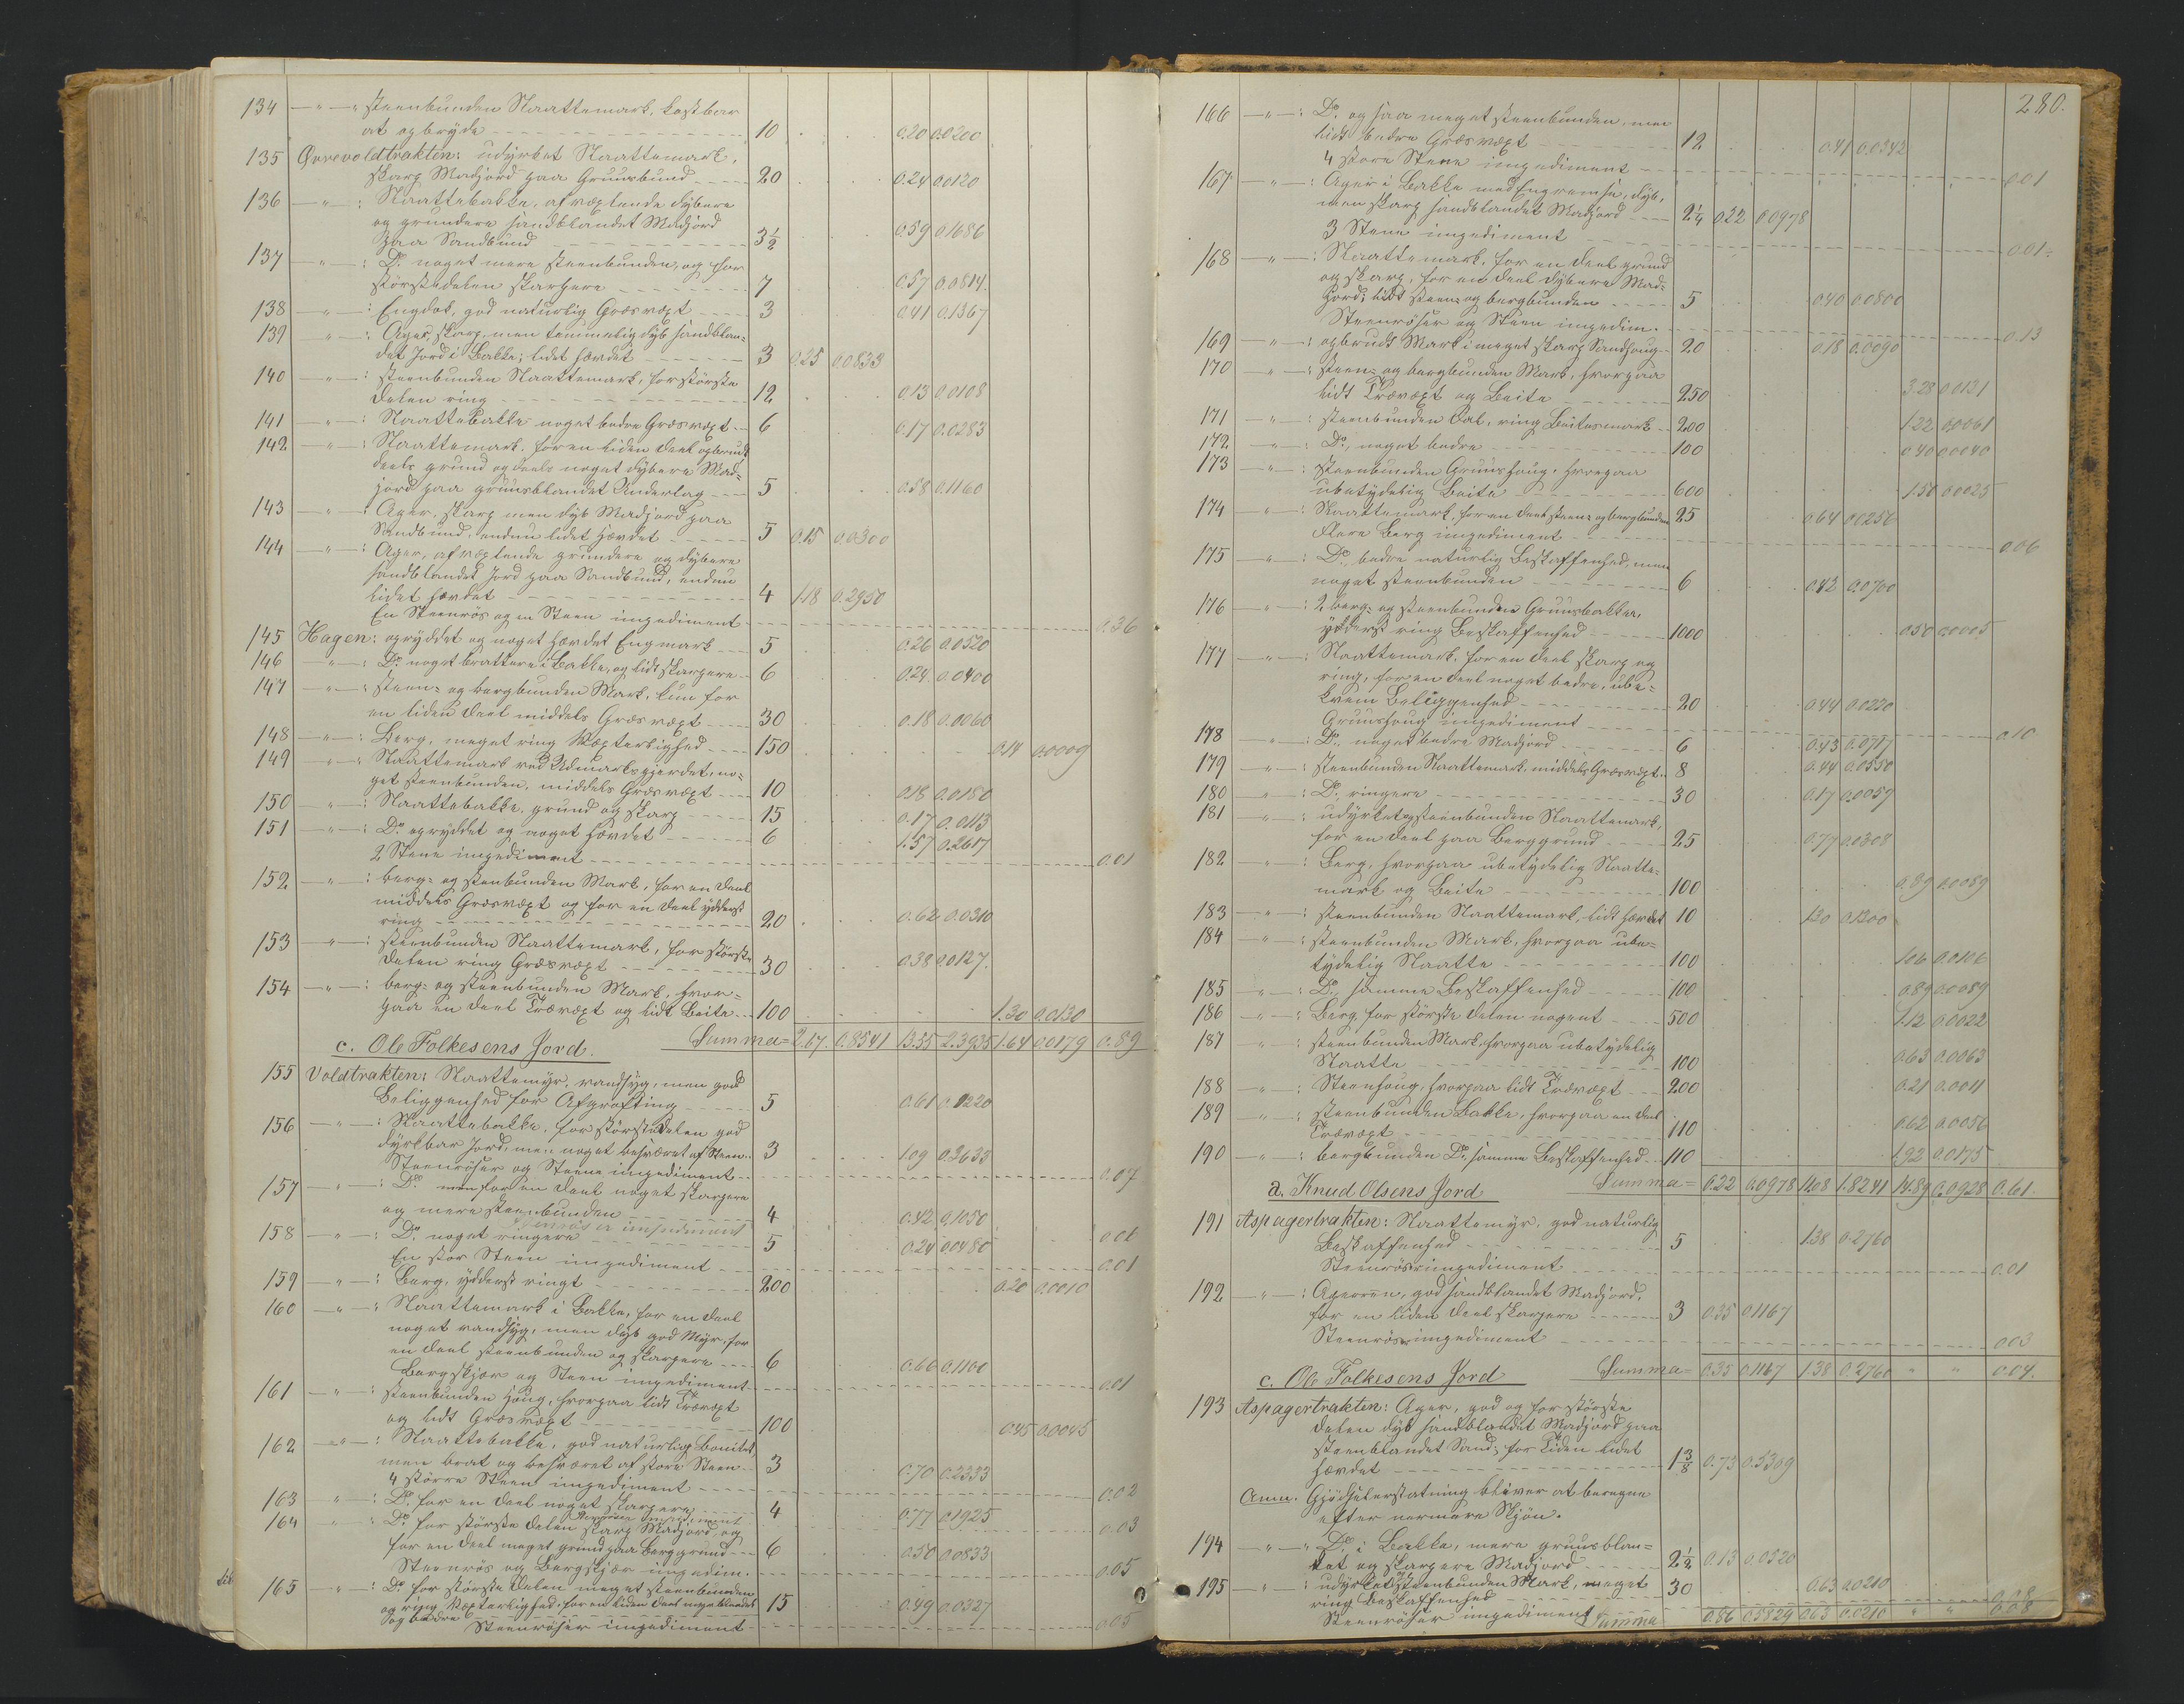 134 —"—" steenbunden Slaattemark, kostbar
at opbryde 10 0.20 0.0200
135 Øvrevoldtrakten: udyrket Slaattemark,
skarp Madjord paa Gruusbund 20 0.24 0.0120
136 —"—: Slaattebakke, afvexlende dybere
og grundere sandblandet Madjord
paa Sandbund 3½ 0.59 0.1686
137 —"—: Do noget mere steenbunden, og for
størstedelen skarpere 7 0.57 0.0814
138 —"—: Engdok, god naturlig Græsvæxt 3 0.41 0.1367
139 —"—: Ager, skarp, men temmelig dyb sandblan-
det Jord i Bakke; lidet hævdet 3 0.25 0.0833
140 —"—: steenbunden Slaattemark, for største
Delen ring 12 0.13 0.0108
141 —"—: Slaattebakke noget bedre Græsvæxt 6 0.17 0.0283
142 —"—: Slaattemark, for en liden Deel opbrudt
deels grund og deels noget dybere Mad-
jord paa gruusblandet Underlag 5 0.58 0.1160
143 —"—: Ager, skarp men dyb Madjord paa
Sandbund, endnu lidet hævdet 5 0.15 0.0300
144 —"—: Ager, afvexlende grundere og dybere
sandblandet Jord paa Sandbund, endnu
lidet hævdet 4 1.18 0.2950
En Steenrøs og en Steen impediment 0.36
145 Hagen: opryddet og noget hævdet Engmark 5 0.26 0.0520
146 —"—: Do noget brattere i Bakke, og lidt skarpere 6 0.24 0.0400
147 —"—: steen- og bergbunden Mark, kun for
en liden Deel middels Græsvæxt 30 0.18 0.0060
148 —"—: Berg, meget ring Væxterlighed 150 0.14 0.0009
149 —"—: Slaattemark ved Udmarksgjerdet, no-
get steenbunden, middels Græsvæxt 10 0.18 0.0180
150 —"—: Slaattebakke, grund og skarp 15 0.17 0.0113
151 —"—: Do opryddet og noget hævdet 6 1.57 0.2617
2 Stene impediment 0.01
152 —"—: berg- og steenbunden Mark, for en Deel
middels Græsvæxt og for en Deel yderst
ring 20 0.62 0.0310
153 —"—: steenbunden Slaattemark, for største
Delen ring Græsvæxt 30 0.38 0.0127
154 —"—: berg- og steenbunden Mark, hvor-
paa en Deel Trævæxt og lidt Beite 100 1.30 0.0130
Summa = 2.67 0.8541 13.55 2.3935 1.64 0.0179 0.89
c. Ole Folkesens Jord.
155 Voldtrakten: Slaattemyr, vandsyg, men god
Beliggenhed for Afgrøfting 5 0.61 0.1220
156 —"—: Slaattebakke, for størstedelen god
dyrkbar Jord, men noget besværet af Steen 3 1.09 0.3633
Steenrøser og Steene impediment 0.07
157 —"—: Do men for en Deel noget skarpere
og mere steenbunden 4 0.42 0.1050
Steenrøser impediment 0.01
158 —"—: Do noget ringere 5 0.24 0.0480
En stor Steen impediment 0.01
159 —"—: Berg, yderst ringt 200 0.20 0.0010
160 —"—: Slaattemark i Bakke, for en Deel
noget vandsyg, men dyb god Myr, for
en Deel steenbunden og skarpere 6 0.66 0.1100
Bergskjær og Steen impediment 0.01
161 —"—: steenbunden Houg, hvorpaa lidt Trævæxt
og lidt Græsvæxt 100 0.45 0.0045
162 —"—: Slaattebakke, god naturlig Bonitet,
men brat og besværet af store Steen 3 0.70 0.2333
4 større Steen impediment 0.02
163 —"—: Do for en Deel noget skarpere 4 0.77 0.1925
Steenrøser impediment 0.03
164 —"—: Do for største Delen skarp Madjord, og
for en Deel meget grund paa Berggrund 6 0.50 0.0833
Steenrøs og Bergskjær impedim. 0.05
165 —"—: Do for største Delen meget steenbunden
og ring Væxterlighed, for en liden Deel
og bedre 15 0.49 0.0327
Steenrøser impediment 0.05
280.
166 —"—: Do og saa meget steenbunden, men
lidt bedre Græsvæxt 12 0.41 0.0342
4 store Stene impediment 0.01
167 —"—: Ager i Bakke med Engremse, dyb,
men skarp sandblandet Madjord 2¼ 0.22 0.0978
3 Stene impediment 0.01
168 —"—: Slaattemark, for en Deel grund
og skarp, for en Deel dybere Mad-
jord; lidt steen- og bergbunden 5 0.40 0.0800
Steenrøser og Steen impedim. 0.13
169 —"—: opbrudt Mark i meget skarp Sandhoug 20 0.18 0.0090
170 —"—: steen- og bergbunden Mark, hvorpaa
lidt Trævæxt og Beite 250 3.28 0.0131
171 —"—: steenbunden Bak, ring Beitesmark 200 1.22 0.0061
172 —"—: Do, noget bedre 100 0.40 0.0040
173 —"—: steenbunden Gruushoug, hvorpaa
ubetydelig Beite 600 1.50 0.0025
174 —"—: Slaattemark, for en Deel steen- og bergbunden 25 0.64 0.0256
Flere Berg impediment 0.06
175 —"—: Do, bedre naturlig Beskaffenhed, men
noget steenbunden 6 0.42 0.0700
176 —"—: 2 berg- og steenbunden Gruusbakker,
yderst ring Beskaffenhed 1000 0.50 0.0005
177 —"—: Slaattemark, for en Deel skarp og
ring, for en Deel noget bedre, ube-
kvem Beliggenhed 20 0.44 0.0220
Gruushoug impediment 0.10
178 —"—: Do, noget bedre Madjord 6 0.43 0.0717
179 —"—: steenbunden Slaattemark, middels Græsvæxt 8 0.44 0.0550
180 —"—: Do, ringere 30 0.17 0.0057
181 —"—: udyrket og steenbunden Slaattemark,
for en Deel paa Berggrund 25 0.77 0.0308
182 —"—: Berg, hvorpaa ubetydelig Slaatte-
mark og Beite 100 0.89 0.0089
183 —"—: steenbunden Slaattemark, lidt hævdet 10 1.30 0.1300
184 —"—: steenbunden Mark, hvorpaa ube-
tydelig Slaatte 100 1.06 0.0106
185 —"—: Do, samme Beskaffenhed 100 0.89 0.0089
186 —"—: Berg, for største Delen nøgent 500 1.12 0.0022
187 —"—: steenbunden Mark, hvorpaa ubetydelig
Slaatte 100 0.63 0.0063
188 —"—: Steenhoug, hvorpaa lidt Trævæxt 200 0.21 0.0011
189 —"—: steenbunden Bakke, hvorpaa en Deel
Trævæxt 110 0.62 0.0056
190 —"—: bergbunden Do, samme Beskaffenhed 110 1.92 0.0175
Summa = 0.22 0.0978 11.68 1.8241 14.89 0.0928 0.61.
a. Knud Olsens Jord
191 Aspagertrakten: Slaattemyr, god naturlig
Beskaffenhed 5 1.38 0.2760
Steenrøs impediment 0.01
192 —"—: Ageren, god sandblandet Madjord,
for en liden Deel skarpere 3 0.35 0.1167
Steenrøs impediment 0.03
Summa = 0.35 0.1167 1.38 0.2760 " " 0.04.
c. Ole Folkesens Jord
193 Aspagertrakten: Ager, god og for største
Delen dyb sandblandet Madjord paa
steenblandet Sand; for Tiden lidet
hævdet 1⅜ 0.73 0.5309
Anm. Gjødselerstatning bliver at beregne
efter nærmere Skjøn.
194 —"—" Do i Bakke, mere gruusblan-
det og skarpere Madjord 2½ 0.13 0.0520
195 —"—: udyrket og steenbunden Mark, meget
ring Beskaffenhed 30 0.63 0.0210
Steenrøser impediment 0.08
Summa 0.86 0.5829 0.63 0.0210 " " 0.08